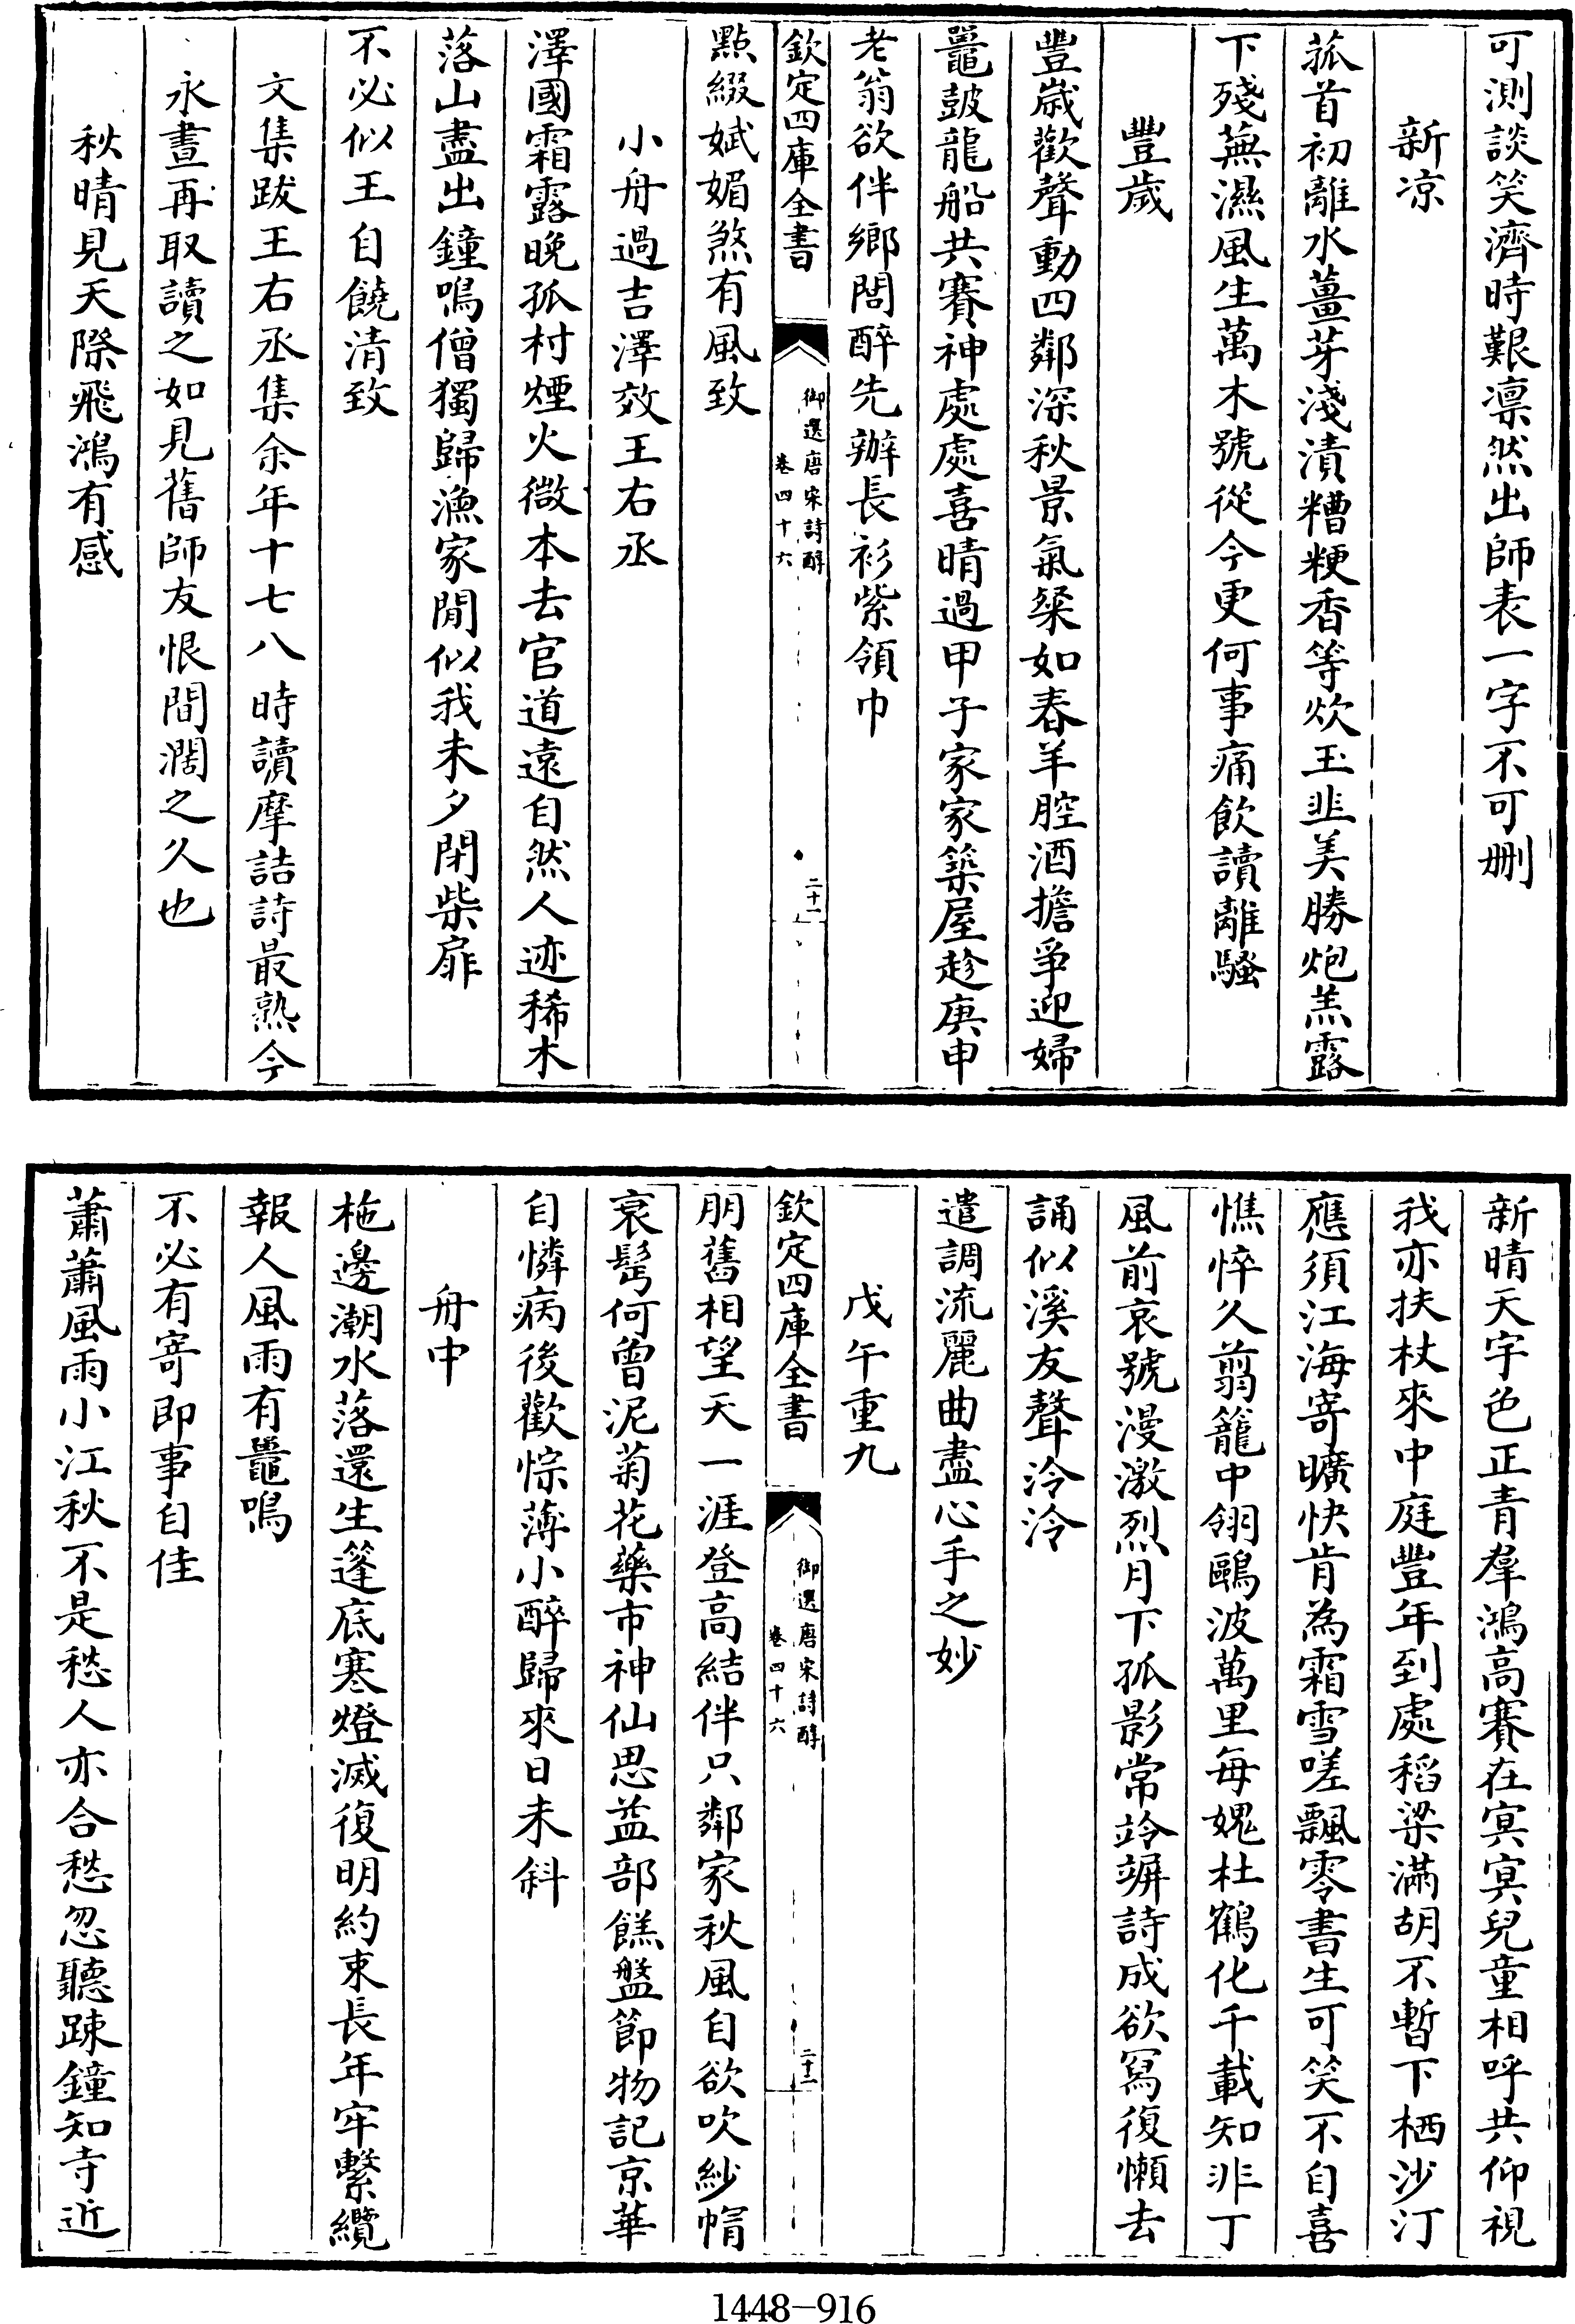 可測談笑濟時艱凛然出師表一字不可刪
新凉
菰首初離水薑芽淺漬糟粳香等炊玉韭美勝炮羔露
下殘蕪濕風生萬木號從今更何事痛飲讀離騷
豐歲
豐歲歡聲動四鄰深秋景氣粲如春羊腔酒擔爭迎婦
鼉鼓龍船共賽神處處喜晴過甲子家家築屋趁庚申
老翁欲伴鄉閭醉先辦長衫紫領巾
欽定四庫全書
御選唐宋詩醇
卷四十六
二十一
點綴娬媚煞有風致
小舟過吉澤效王右丞
澤國霜露晚孤村煙火微本去官道遠自然人迹稀木
落山盡出鐘鳴僧獨歸漁家閒似我未夕閉柴扉
不必似王自饒清致
文集跋王右丞集余年十七八時讀摩詰詩最熟今
永晝再取讀之如見舊師友恨間濶之久也
秋晴見天際飛鴻有感
新晴天宇色正青羣鴻高騫在冥冥兒童相呼共仰視
我亦扶杖來中庭豐年到處稻粱滿胡不暫下栖沙汀
應須江海寄曠快肯為霜雪嗟飄零書生可笑不自喜
憔悴久翦籠中翎鷗波萬里每媿杜鶴化千載知非丁
風前哀號漫激烈月下孤影常竛竮詩成欲寫復懶去
誦似溪友聲泠泠
遣調流麗曲盡心手之妙
戊午重九
欽定四庫全書
御選唐宋詩醇
卷四十六
二十二
朋舊相望天一涯登高結伴只鄰家秋風自欲吹紗帽
衰髩何曾泥菊花藥市神仙思益部餻盤節物記京華
自憐病後歡悰薄小醉歸來日未斜
舟中
柂邊潮水落還生篷底寒燈滅復明約束長年牢繫纜
報人風雨有鼉鳴
不必有寄即事自佳
蕭蕭風雨小江秋不是愁人亦合愁忽聽踈鐘知寺近
1448-916